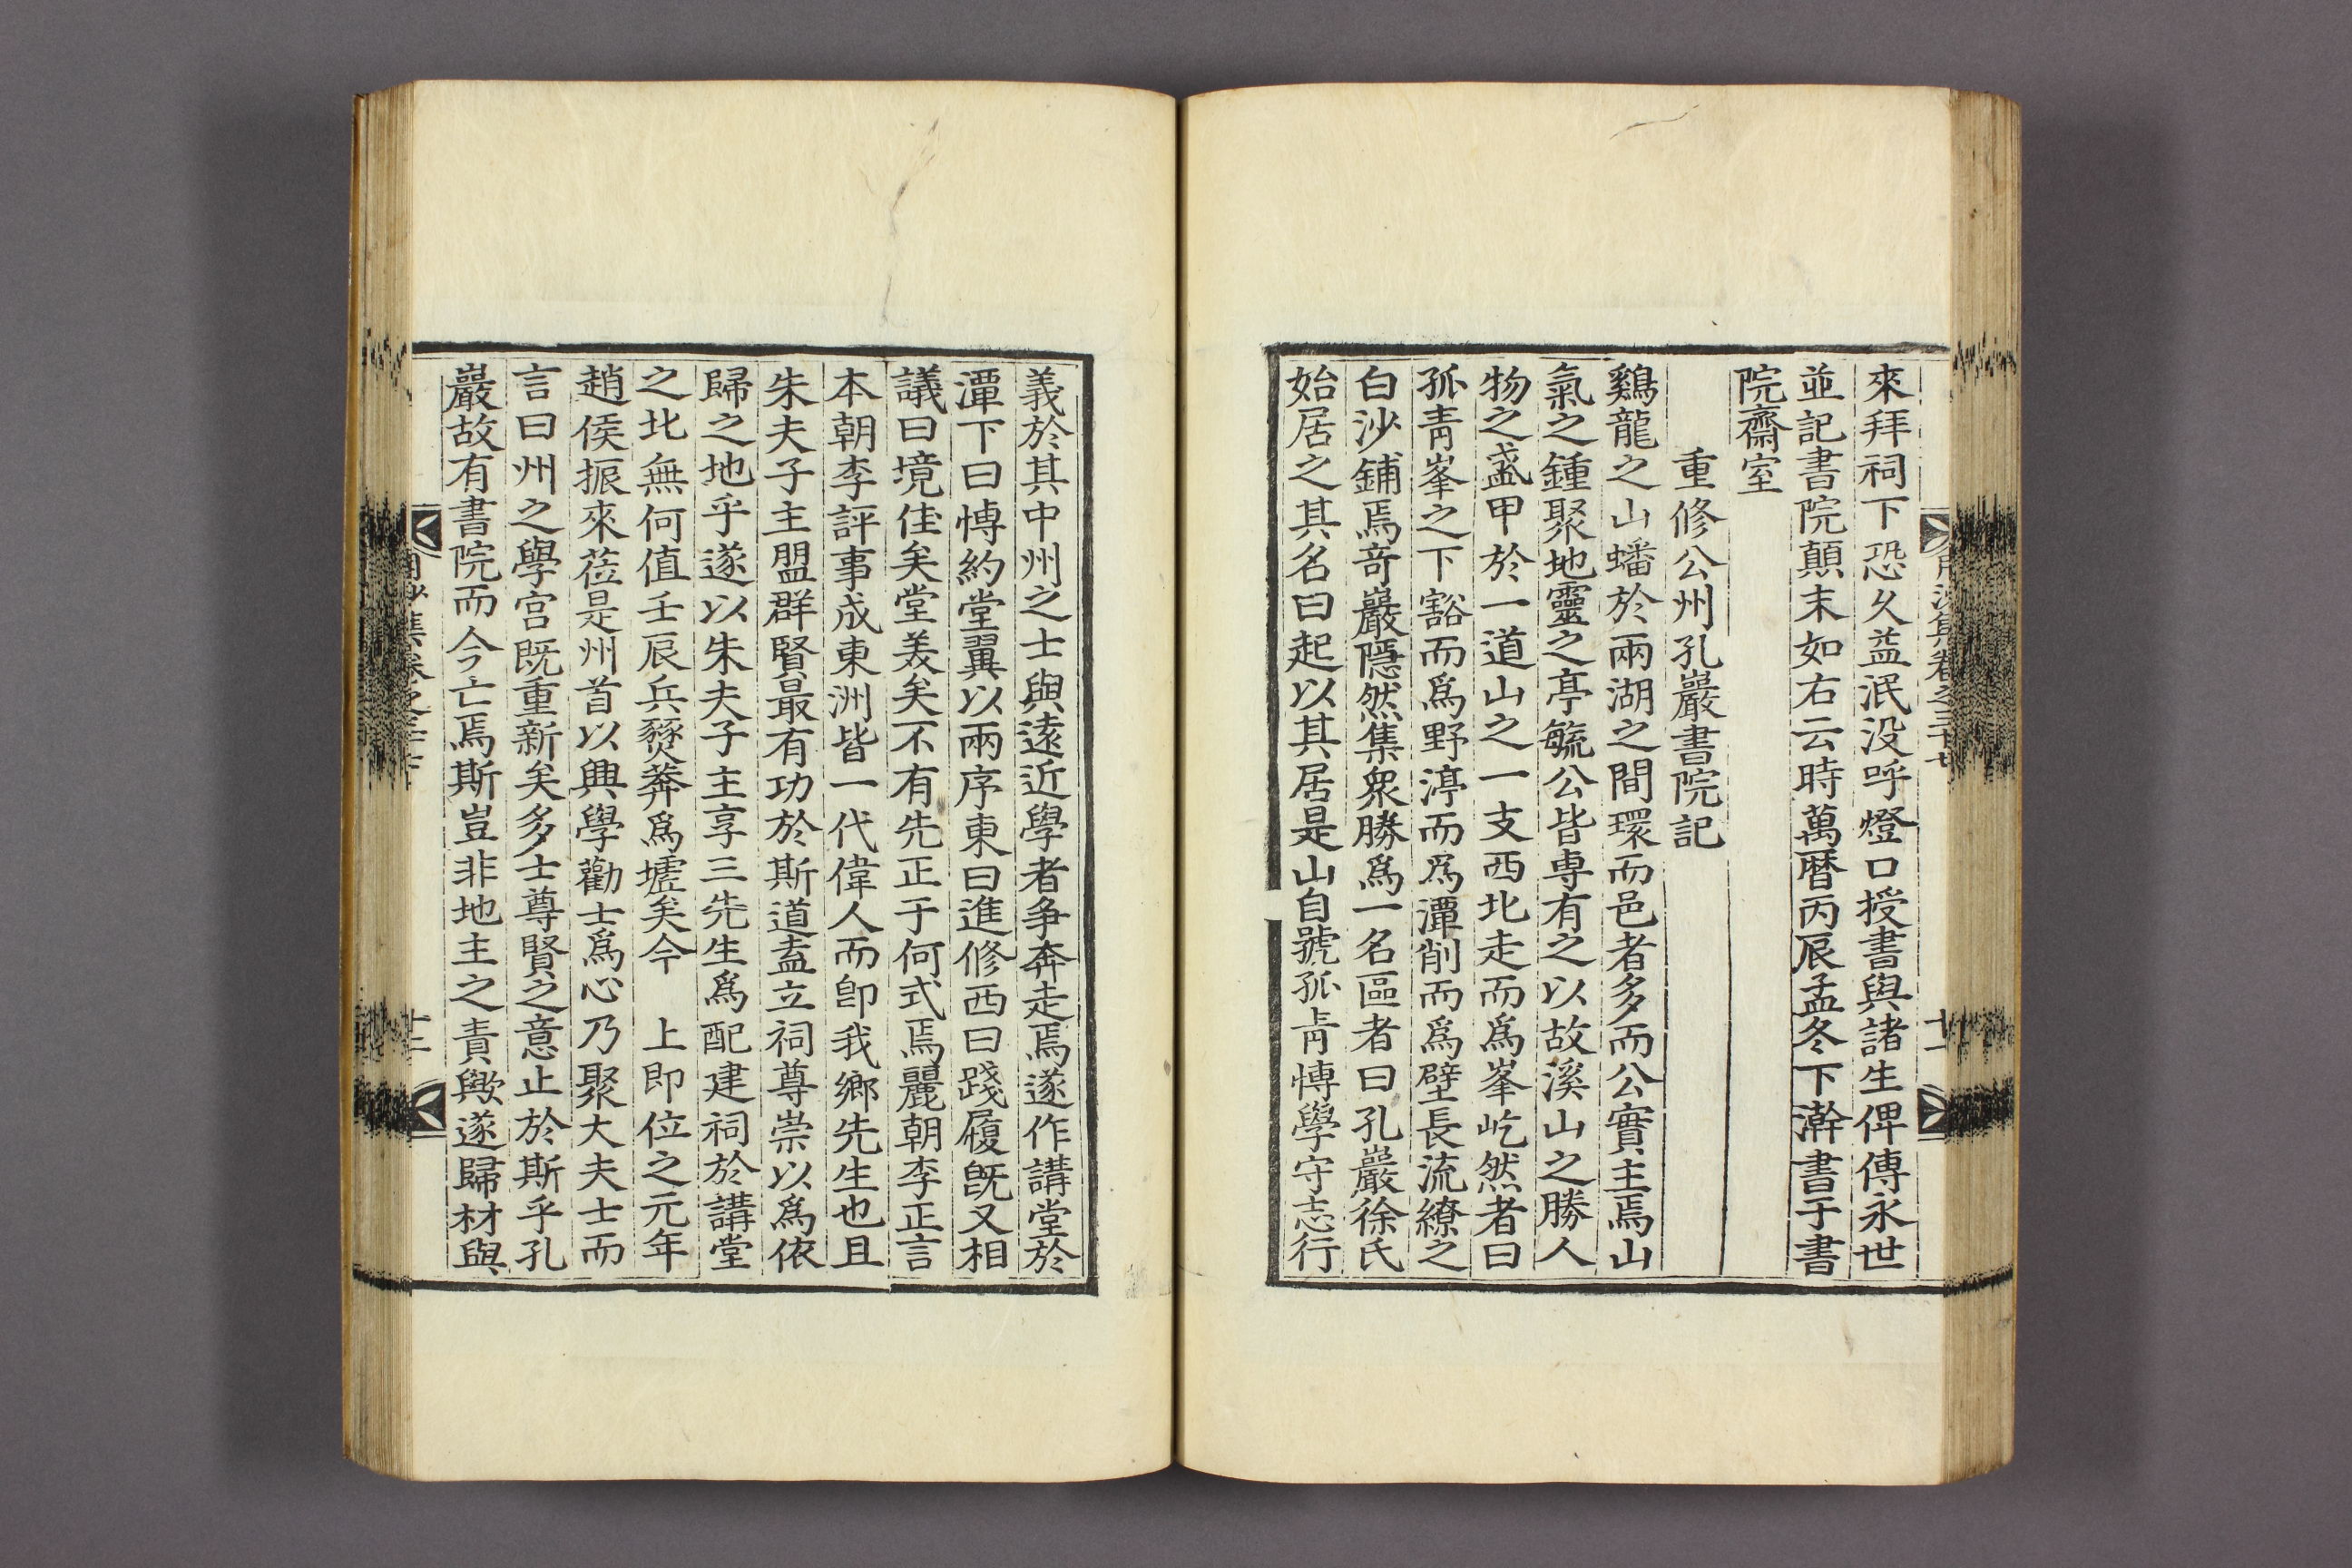 來拜祠下恐久益泯没呼燈口授書與諸生俾傳永世
並記書院顛末如右云時萬曆丙辰孟冬下澣書于書
院齋室
重修公州孔巖書院記
鷄龍之山蟠於兩湖之間環而邑者多而公實主焉山
氣之鍾聚地靈之亭毓公皆專有之以故溪山之勝人
物之盛甲於一道山之一支西北走而爲峯屹然者曰
孤靑峯之下豁而爲野渟而爲潭削而爲壁長流繚之
白沙鋪焉奇巖隱然集衆勝爲一名區者曰孔巖徐氏
始居之其名曰起以其居是山自號孤靑愽學守志行
義於其中州之士與遠近學者爭奔走焉遂作講堂於
潭下曰愽約堂翼以兩序東曰進修西曰踐履旣又相
議曰境佳矣堂美矣不有先正于何式焉麗朝李正言
本朝李評事成東洲皆一代偉人而卽我鄕先生也且
朱夫子主盟群賢最有功於斯道盍立祠尊崇以爲依
歸之地乎遂以朱夫子主享三先生爲配建祠於講堂
之北無何值壬辰兵燹莽爲墟矣今 上即位之元年
趙侯振來莅是州首以興學勸士爲心乃聚大夫士而
言曰州之學宮旣重新矣多士尊賢之意止於斯乎孔
巖故有書院而今亡焉斯豈非地主之責歟遂歸材與
月沙集卷之三十七
十一
十二